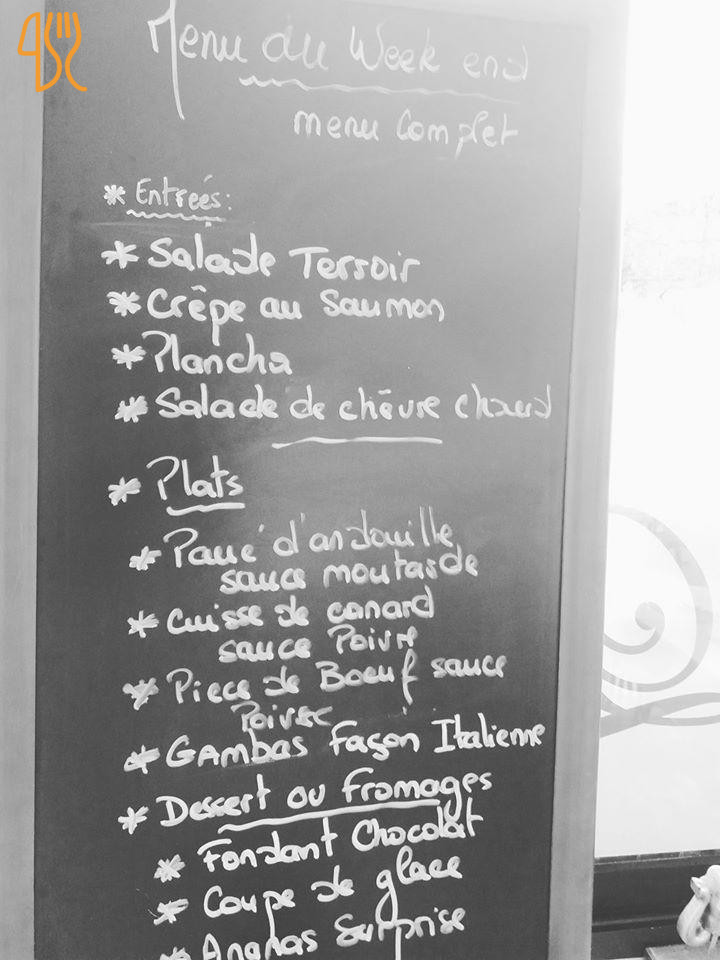 Menu du Week end
menu Complet
* Entreés:
* Salade Terroir
* Crêpe au Saumon
* Plancha
* Salade de chêvre chaud
* Plats
* Pavé d'andouille
sauce moutarde
* Cuisse de canard
sauce Poivre
* Piece de Boeuf sauce
Poivre
* GAMBAS Façon Italienne
* Dessert ou fromages
* Fondant Chocolat
* Coupe de glace
* Ananas Surprise